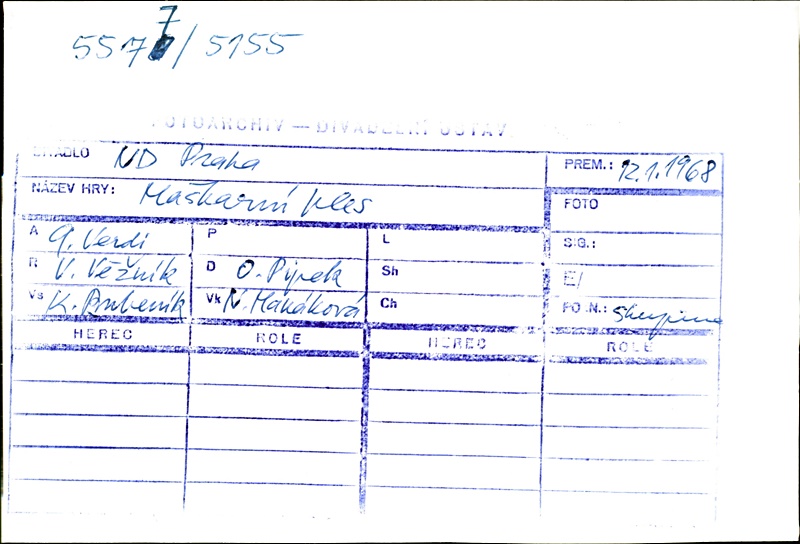 5577/5155
FOTOARCHIV — DIVADELNÍ ÚSTAV
DIVADLO ND Praha PREM.: 12.1.1968
NÁZEV HRY: Maškarní ples FOTO
A G. Verdi P L SIG.:
R V. Věžník D O. Pýrek Sh E/
Vs K. Bubeník Vk N. Hanáková Ch PO.N.: skupina
HEREC ROLE HEREC ROLE